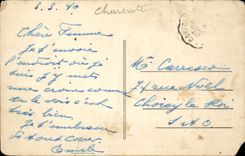 5. 5. 40
Charente
Chère Femme
je t'envoie
l'endroit ou je
suis j'y mets
une croix comme
tu le vois c'est
très bien
je t'embrasse
de tout cœur
Emile
Me Carrusco
74 rue Noël
Choisy le Roi
S. & O.